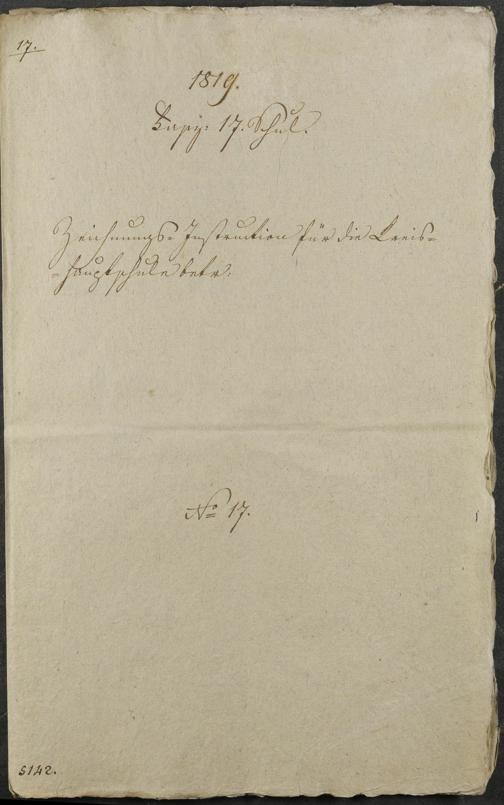 17.
1819.
Fasz: 17. Schul.
Zeichnungs-Instruction für die Kreis-
-hauptschule betr:
No 17.
5142.